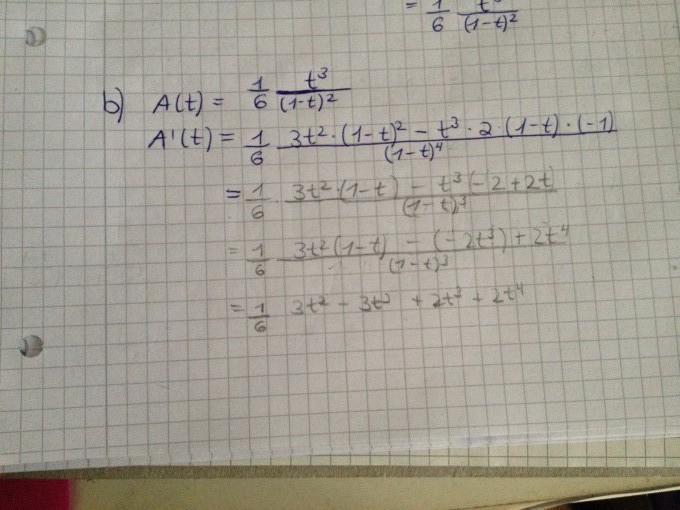 = 1/6 t³/(1-t)²
b) A(t) = 1/6 t³/(1-t)²
A'(t) = 1/6 (3t²·(1-t)² - t³·2·(1-t)·(-1))/(1-t)⁴
= 1/6 · (3t²·(1-t) - t³(-2+2t)/(1-t)³
= 1/6 (3t²(1-t) - (-2t³)+2t⁴)/(1-t)³
= 1/6 3t² - 3t³ + 2t³ + 2t⁴